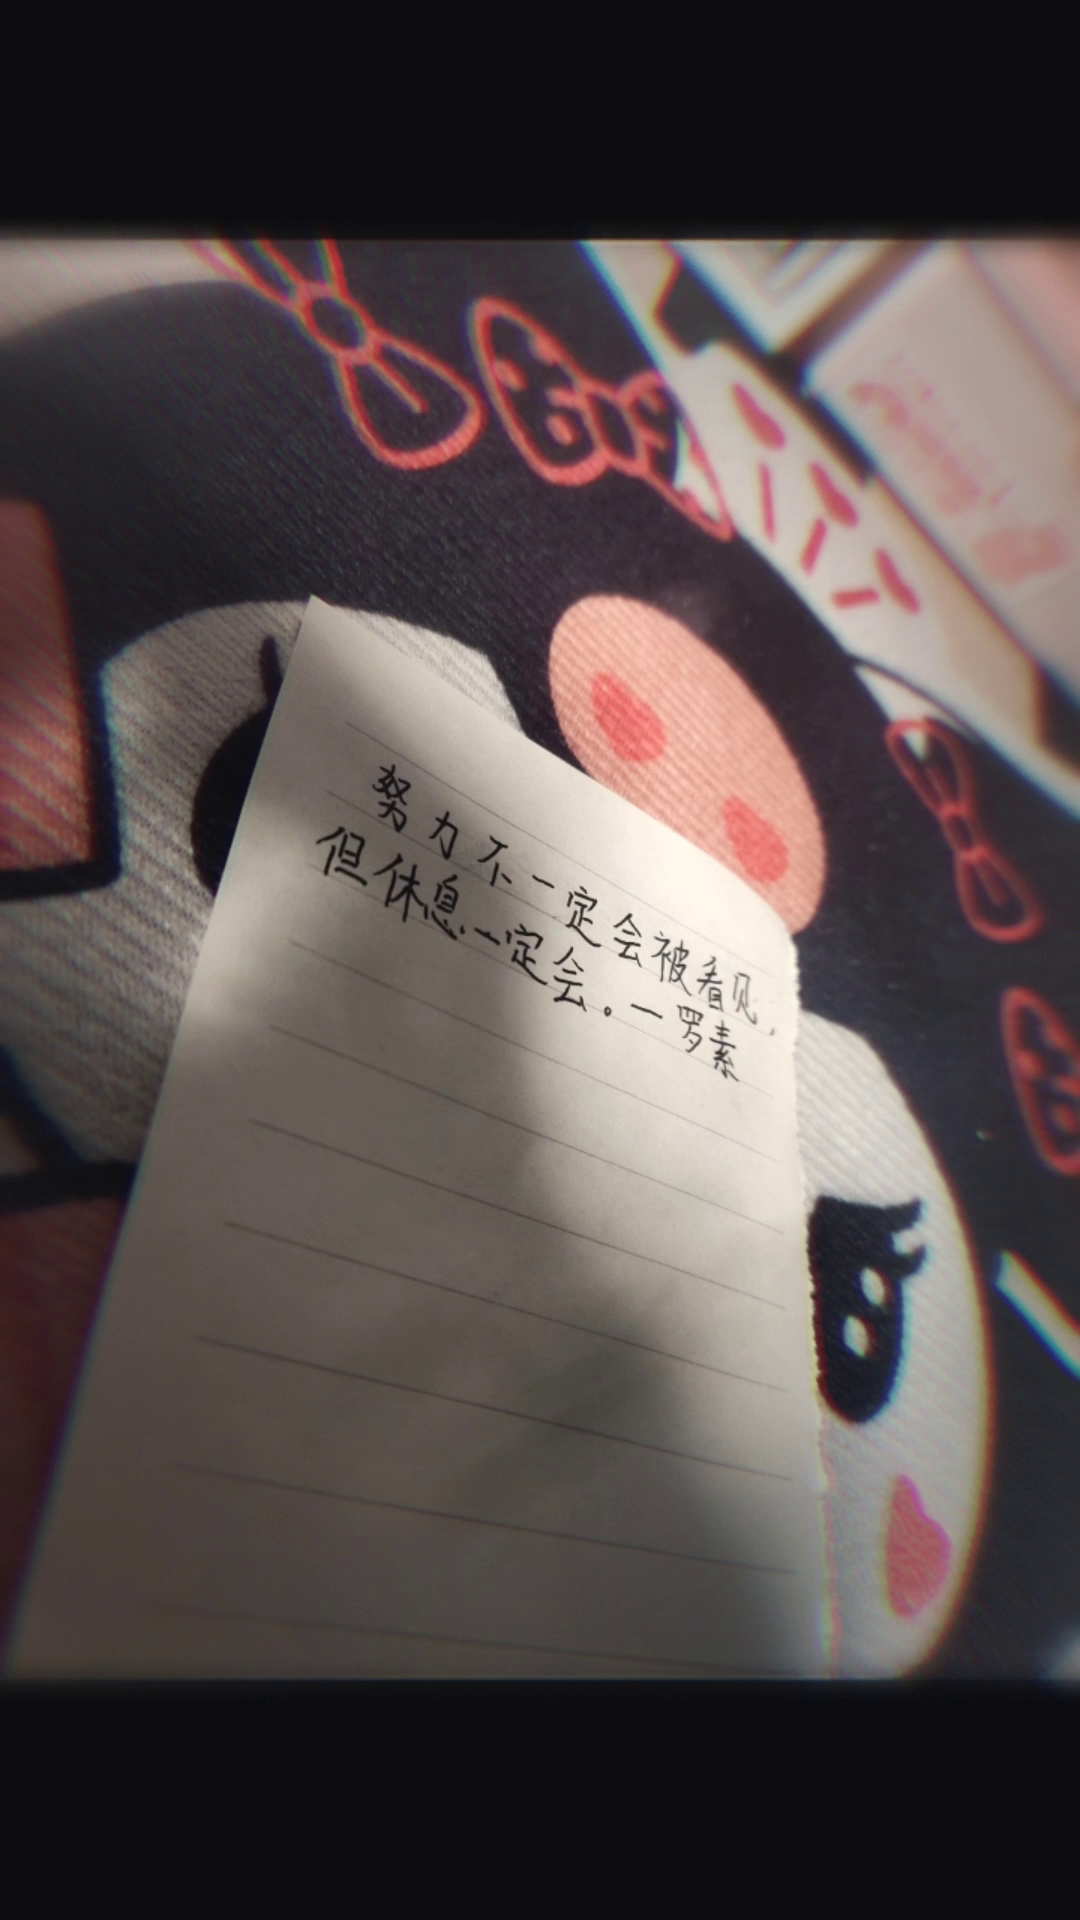 努力不一定会被看见,
但休息一定会。一罗素